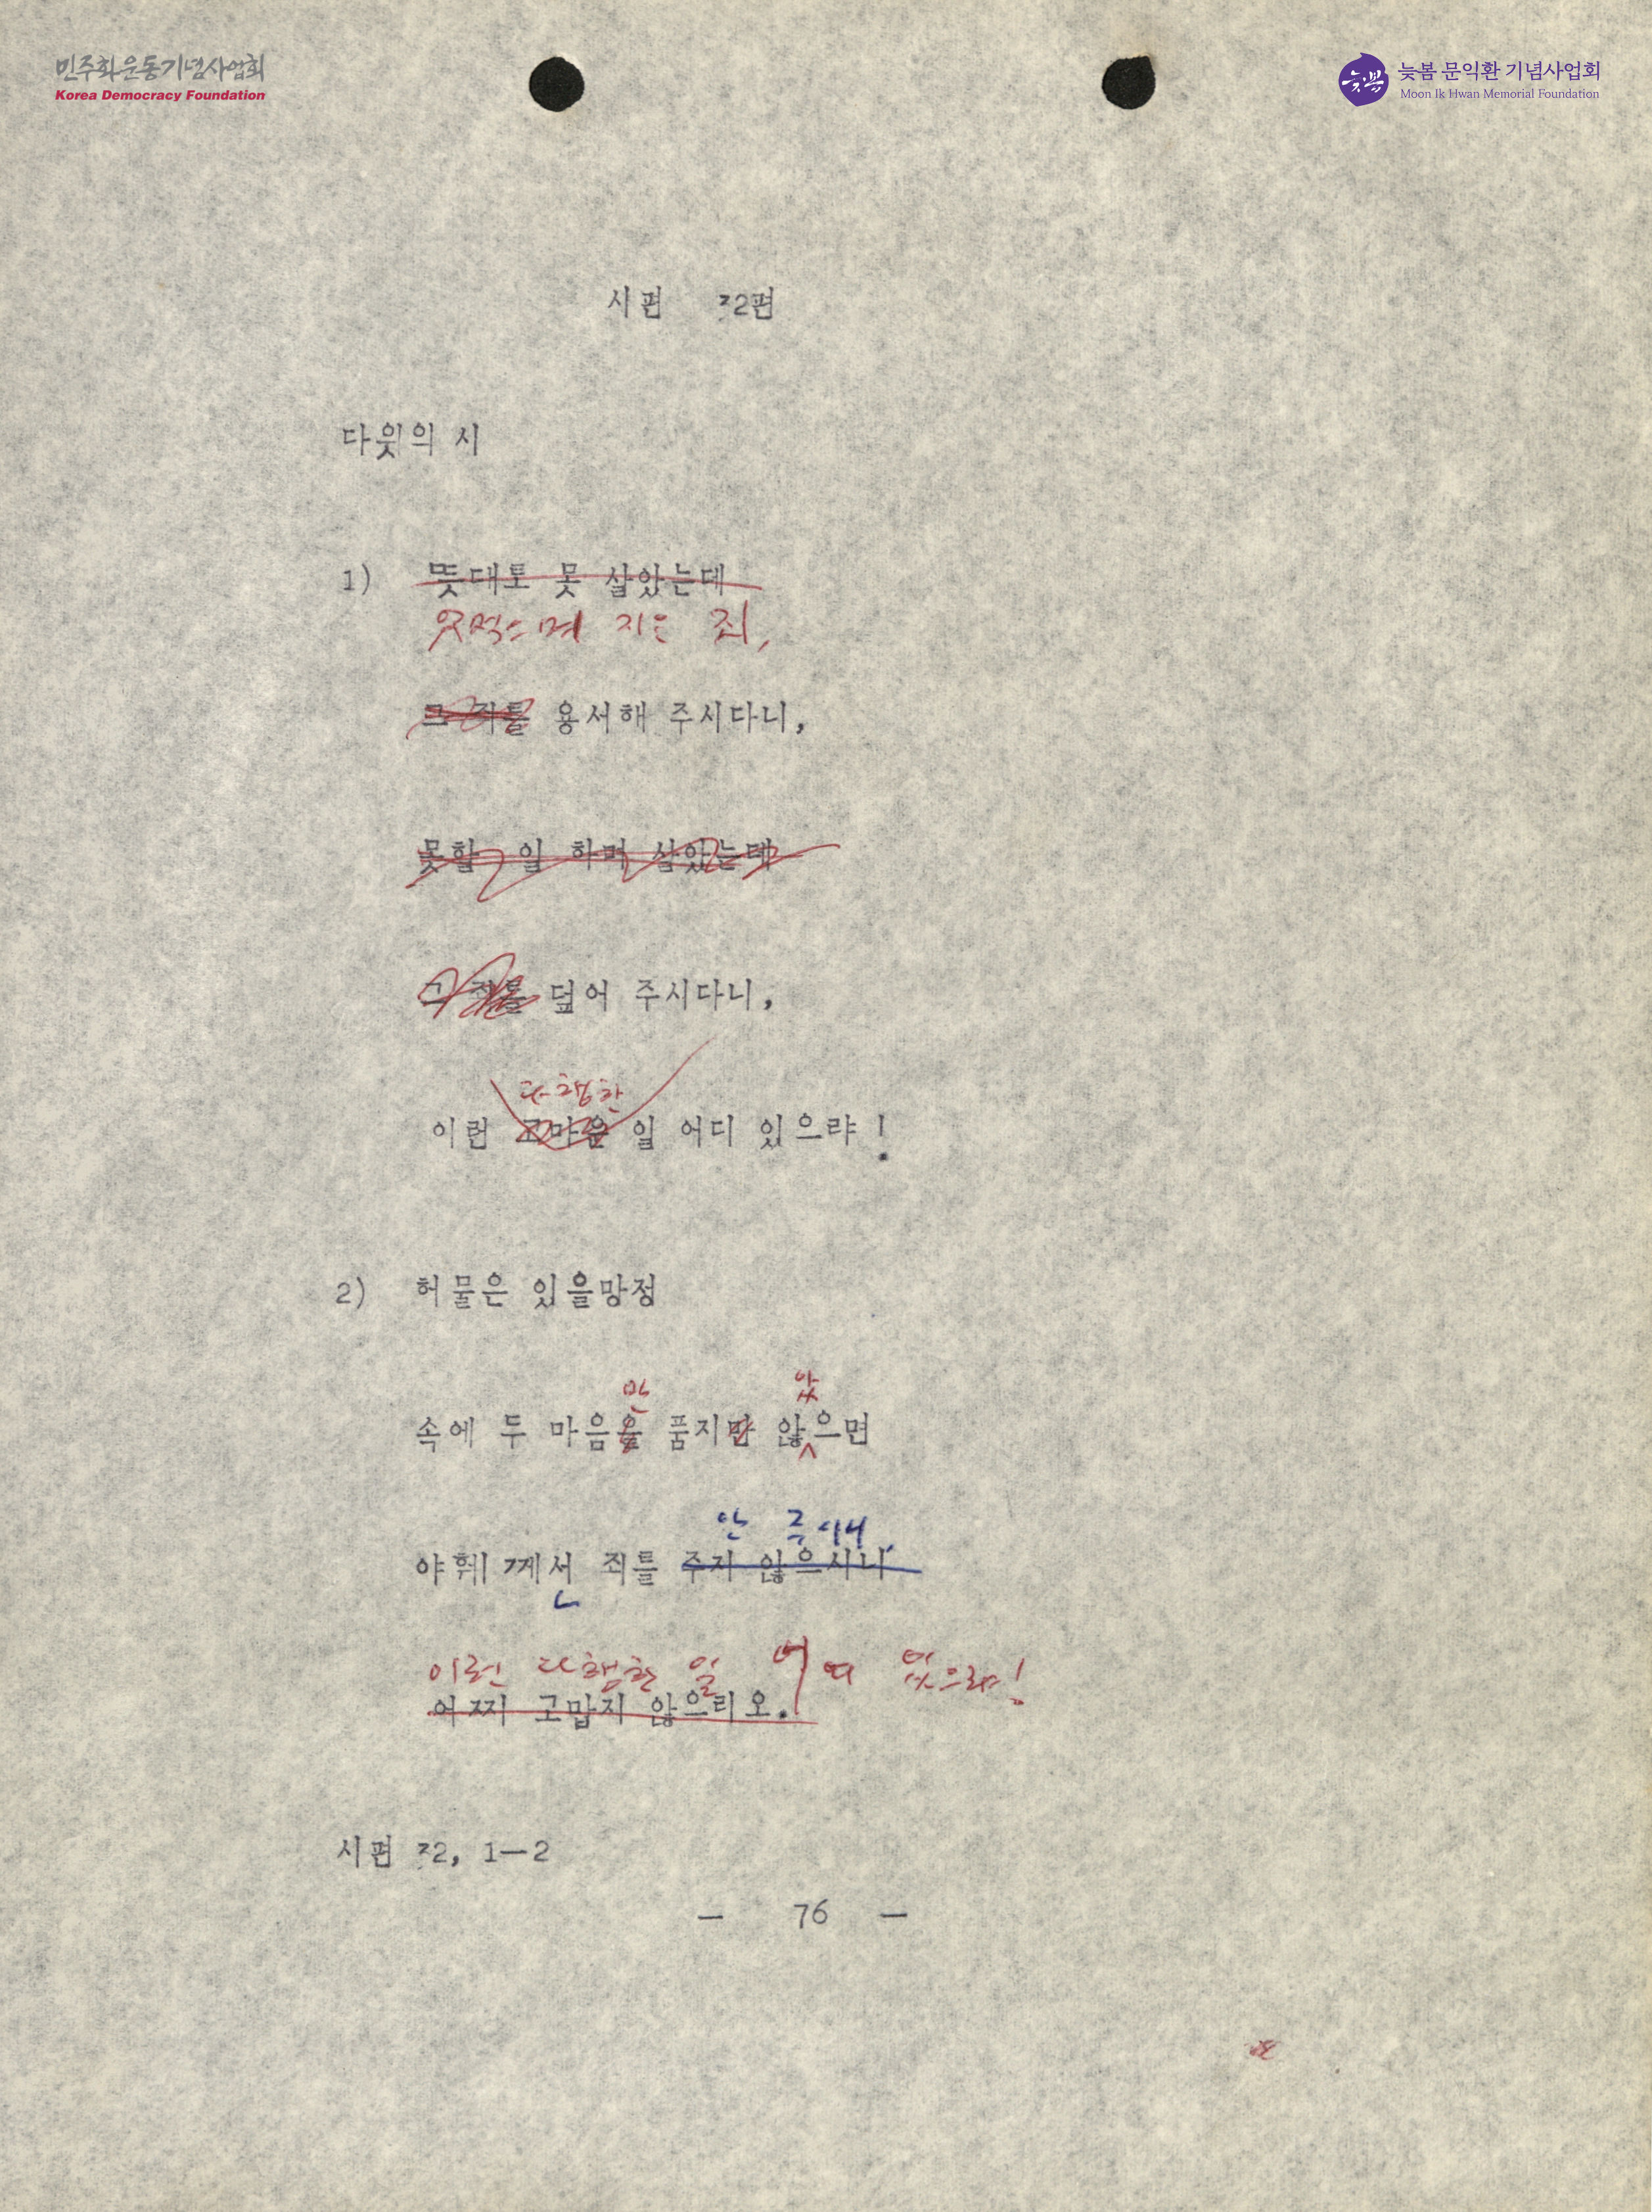 민주화운동기념사업회
Korea Democracy Foundation
늦봄
늦봄 문익환 기념사업회
Moon Ik Hwan Memorial Foundation
시편 32편
다윗의 시
1) 뜻대로 못 살았는데
지은 죄,
그 죄를 용서해 주시다니,
못할 일 하며 살았는데
그 죄를 덮어 주시다니,
다행한
이런 고마운 일 어디 있으랴!
2) 허물은 있을망정
만 았
속에 두 마음을 품지만 않으면
안 주시니,
야훼께서 죄를 주지 않으시니
ㄴ
이런 다행한 일 어디 있으랴!
어찌 고맙지 않으리오.
시편 32, 1—2
— 76 —